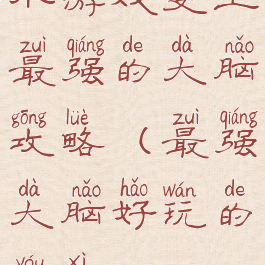 zuì qiáng de dà nǎo
最强的大脑
gōng lüè zuì qiáng
攻略（最强
dà nǎo hǎo wán de
大脑好玩的